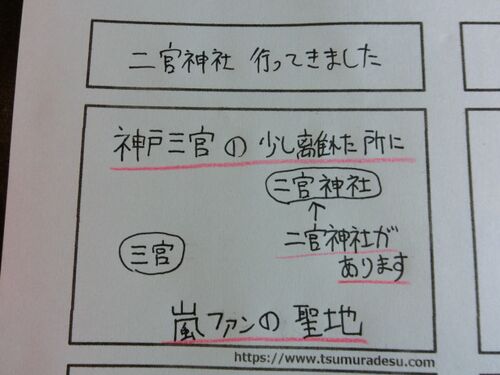 二宮神社 行ってきました
神戸三宮の少し離れた所に
二宮神社
↑
二宮神社が
三宮
あります
嵐ファンの聖地
https://www.tsumuradesu.com